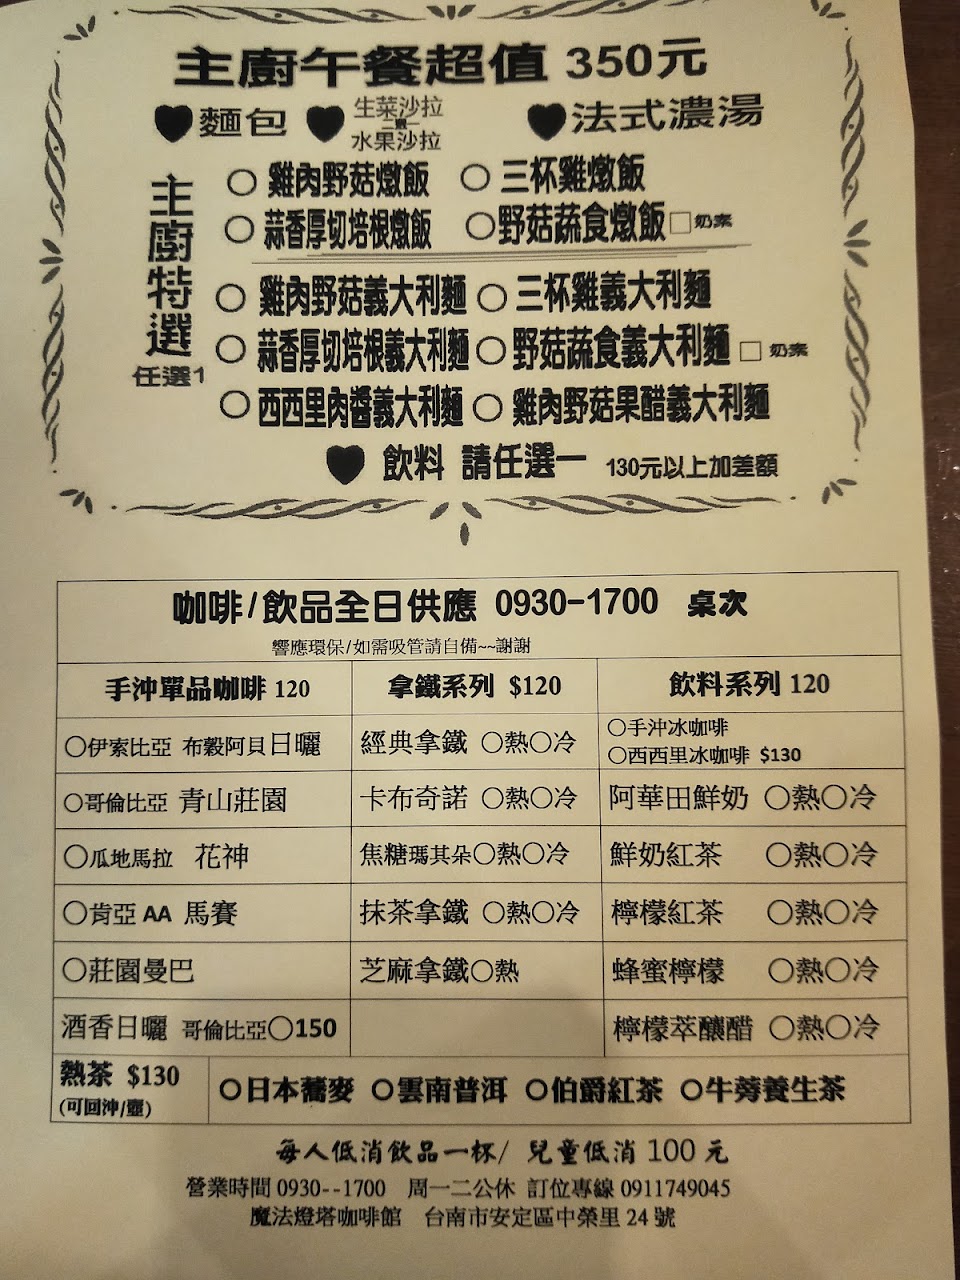 主廚午餐超值 350元
麵包 生菜沙拉 二選一 水果沙拉 法式濃湯
主廚特選
任選1
○ 雞肉野菇燉飯 ○ 三杯雞燉飯
○ 蒜香厚切培根燉飯 ○ 野菇蔬食燉飯 □ 奶素
○ 雞肉野菇義大利麵 ○ 三杯雞義大利麵
○ 蒜香厚切培根義大利麵 ○ 野菇蔬食義大利麵 □ 奶素
○ 西西里肉醬義大利麵 ○ 雞肉野菇果醋義大利麵
飲料 請任選一 130元以上加差額
咖啡/飲品全日供應 0930-1700 桌次
響應環保/如需吸管請自備~~謝謝
手沖單品咖啡 120 拿鐵系列 $120 飲料系列 120
○伊索比亞 布穀阿貝日曬 經典拿鐵 ○熱○冷 ○手沖冰咖啡
○西西里冰咖啡 $130
○哥倫比亞 青山莊園 卡布奇諾 ○熱○冷 阿華田鮮奶 ○熱○冷
○瓜地馬拉 花神 焦糖瑪其朵○熱○冷 鮮奶紅茶 ○熱○冷
○肯亞 AA 馬賽 抹茶拿鐵 ○熱○冷 檸檬紅茶 ○熱○冷
○莊園曼巴 芝麻拿鐵○熱 蜂蜜檸檬 ○熱○冷
酒香日曬 哥倫比亞○150 檸檬萃釀醋 ○熱○冷
熱茶 $130
(可回沖/壺)
○日本蕎麥 ○雲南普洱 ○伯爵紅茶 ○牛蒡養生茶
每人低消飲品一杯/ 兒童低消 100 元
營業時間 0930--1700 周一二公休 訂位專線 0911749045
魔法燈塔咖啡館 台南市安定區中榮里 24 號